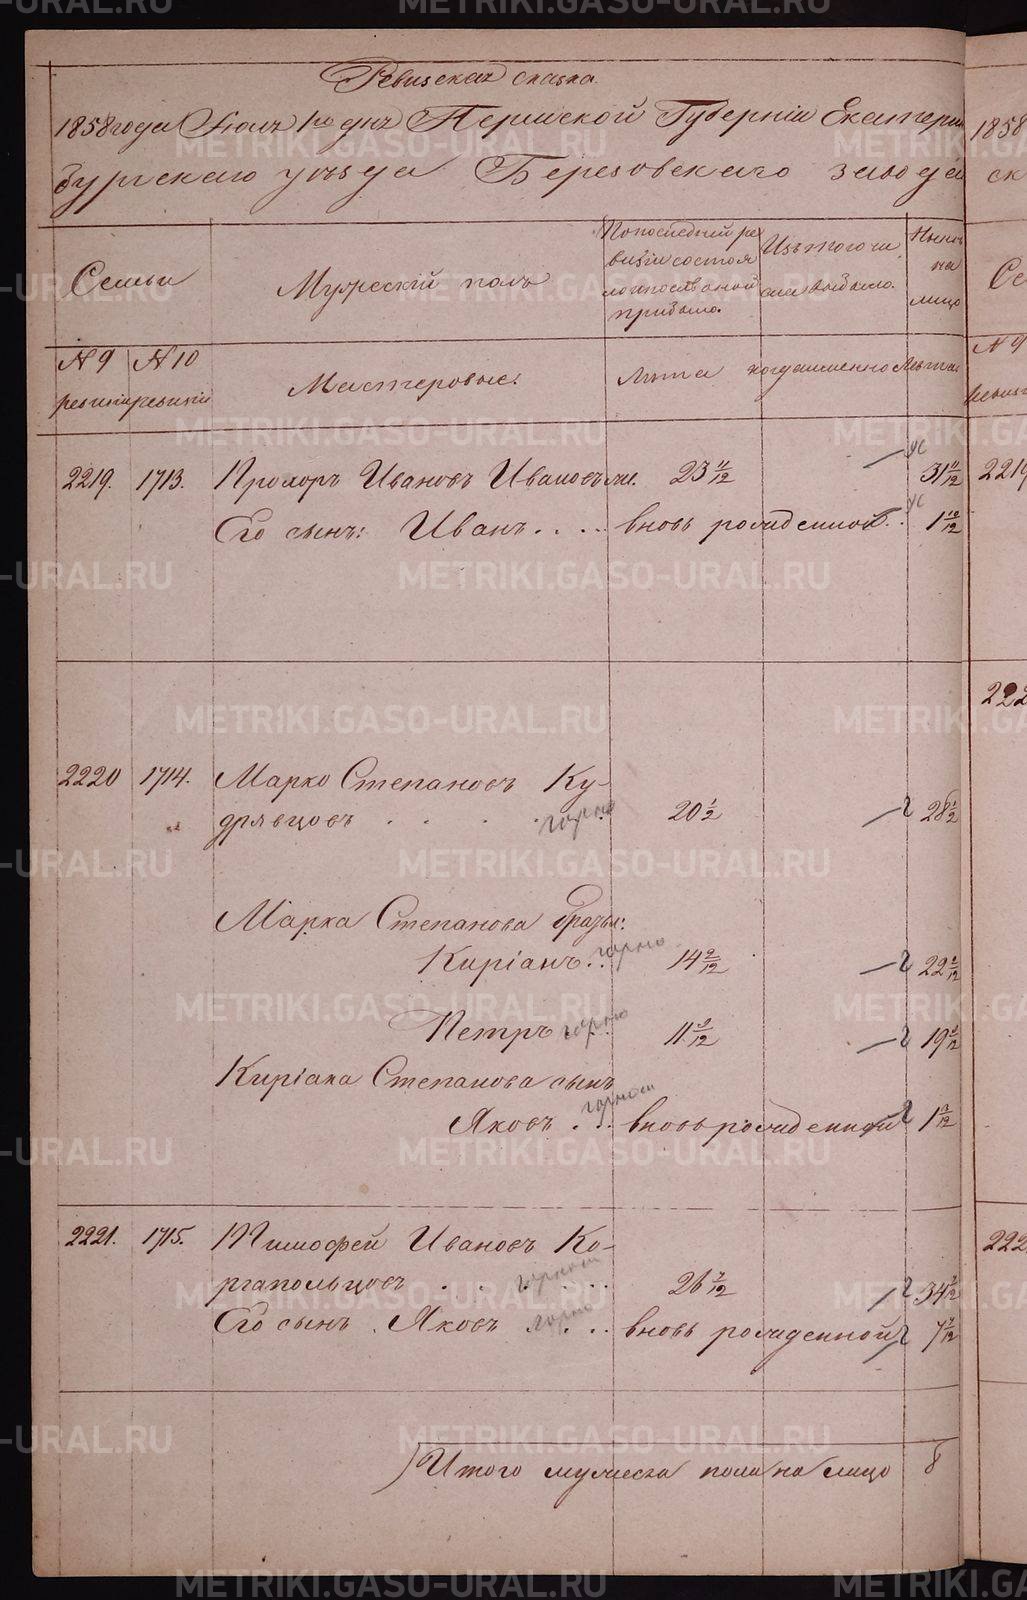 Ревизская сказка.
1858 года Июля 1го дня Пермской Губерніи Екатерин
бургскаго уѣзда Березовскаго завода
Семьи
Мужескій полъ
По последней ре
визіи состоя
ло и после оной
прибыло.
Изъ того чи
сла выбыло.
Нынѣ
на
лицо
№ 9 № 10
ревизіи ревизіи
Мастеровые:
Лѣта
когда именно
Лѣта
2219. 1713. Прохоръ Ивановъ Ивановъ 23 11/12 31 11/12
Его сынъ: Иванъ вновь рожденной 1 10/12
2220 1714. Марко Степановъ Ку-
дрявцовъ горно 20 1/2 28 1/2
Марка Степанова братья:
Киріанъ горно 14 2/12 22 2/12
Петръ горно 11 3/12 19 3/12
Киріана Степанова сынъ
Яковъ вновь рожденной 1 3/12
2221. 1715. Тимофей Ивановъ Ко-
ргапольцовъ 26 7/12 34 7/12
Его сынъ Яковъ горно вновь рожденной 7 7/12
Итого мужеска пола на лицо 8
1858
ск
Се
№ 9
2219
222
222
METRIKI.GASO-URAL.RU